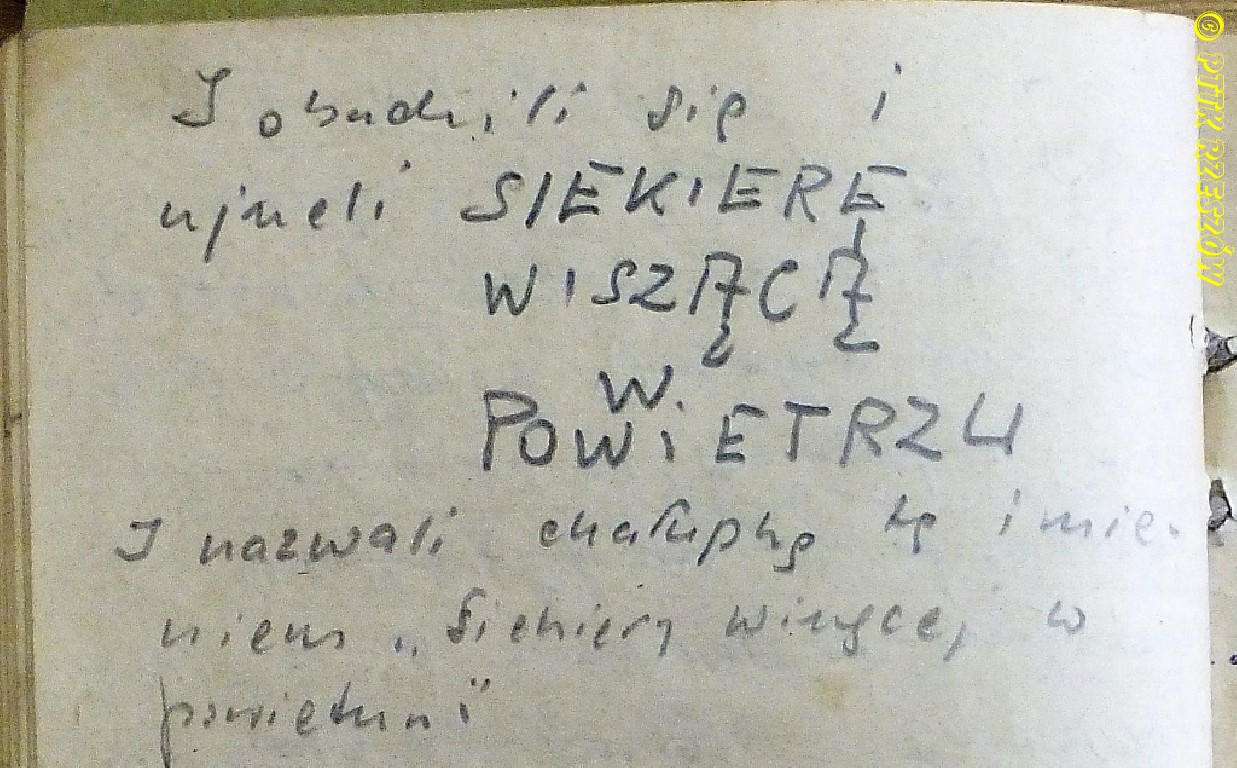 I obudzili się i
ujneli SIEKIERĘ
WISZĄCĄ
W
POWIETRZU
I nazwali chałupkę tę imie-
niem „Siekiery wiszącej w
powietrzu"
© PTTK RZESZÓW